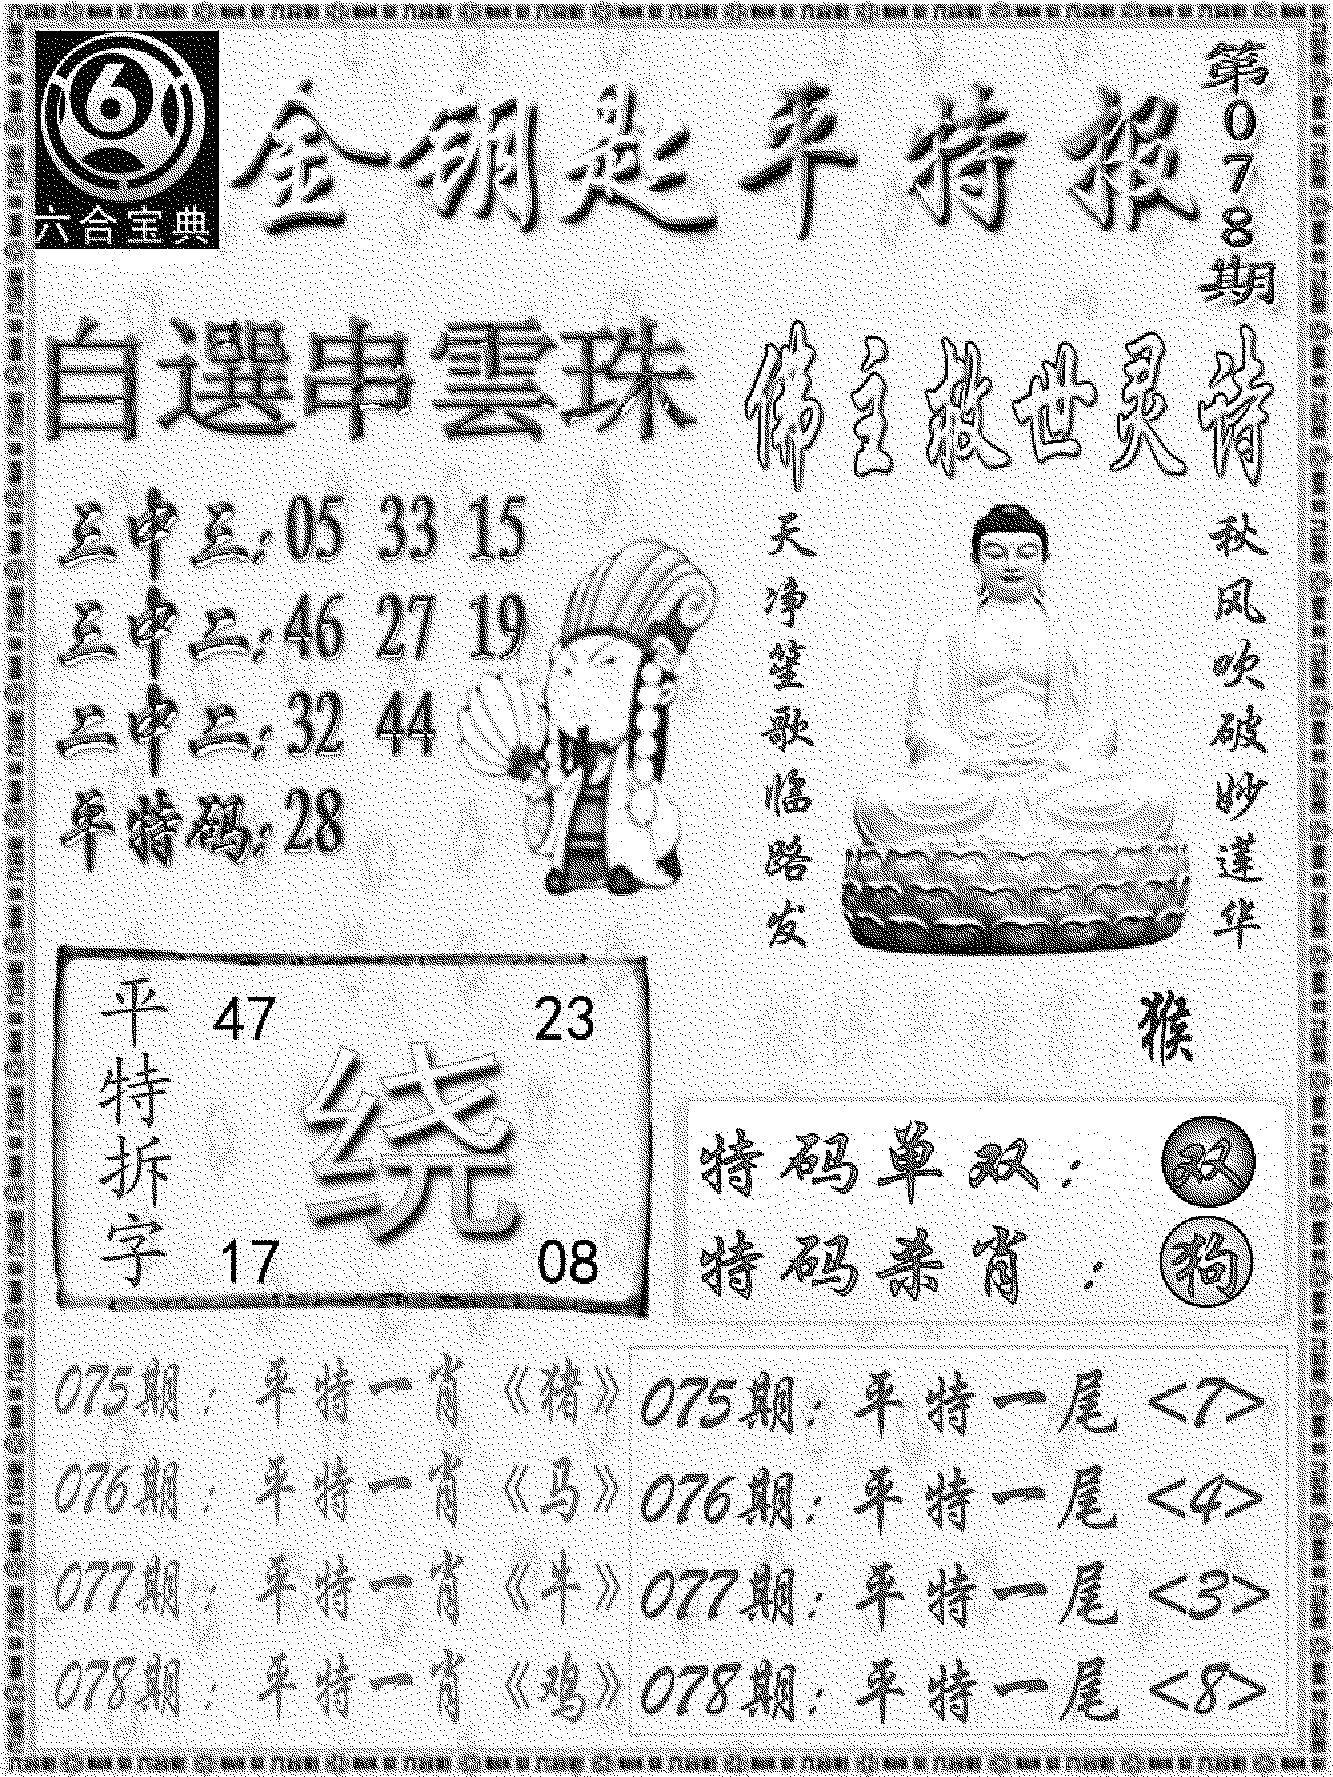 6
六合宝典
金钥匙平特报
第078期
自選串雲珠
三中三:05 33 15
三中二:46 27 19
二中二:32 44
平特码:28
佛主救世灵诗
秋风吹破妙莲华
天净笙歌临路发
猴
平特拆字
47
23
绕
17
08
特码单双:双
特码杀肖:狗
075期:平特一肖《猪》
076期:平特一肖《马》
077期:平特一肖《牛》
078期:平特一肖《鸡》
075期:平特一尾<7>
076期:平特一尾<4>
077期:平特一尾<3>
078期:平特一尾<8>